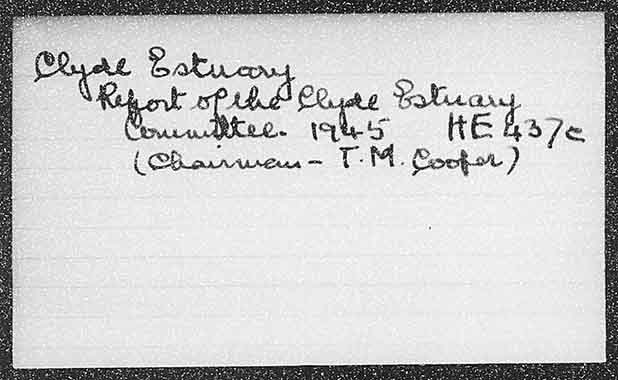 Clyde Estuary
Report of the Clyde Estuary
Committee. 1945 HE 437c
(Chairman - T.M. Cooper)